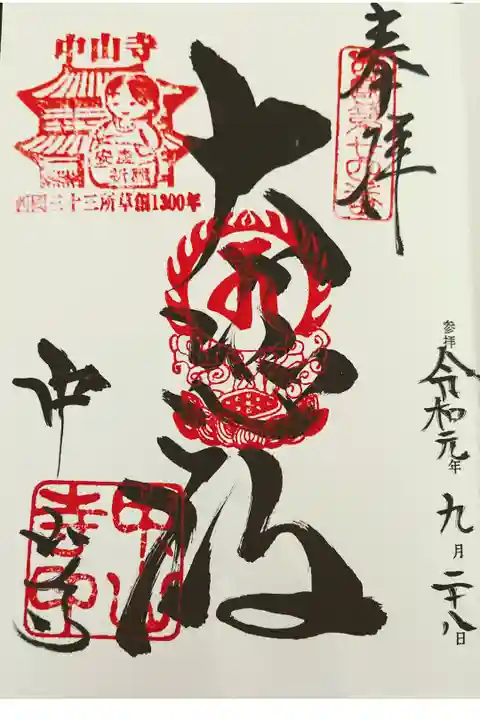 奉拝
西國第廿四番
参拝 令和元年九月二十八日
大悲殿
中山寺
西國三十三所草創1300年
安産祈願
中山寺
中山寺印